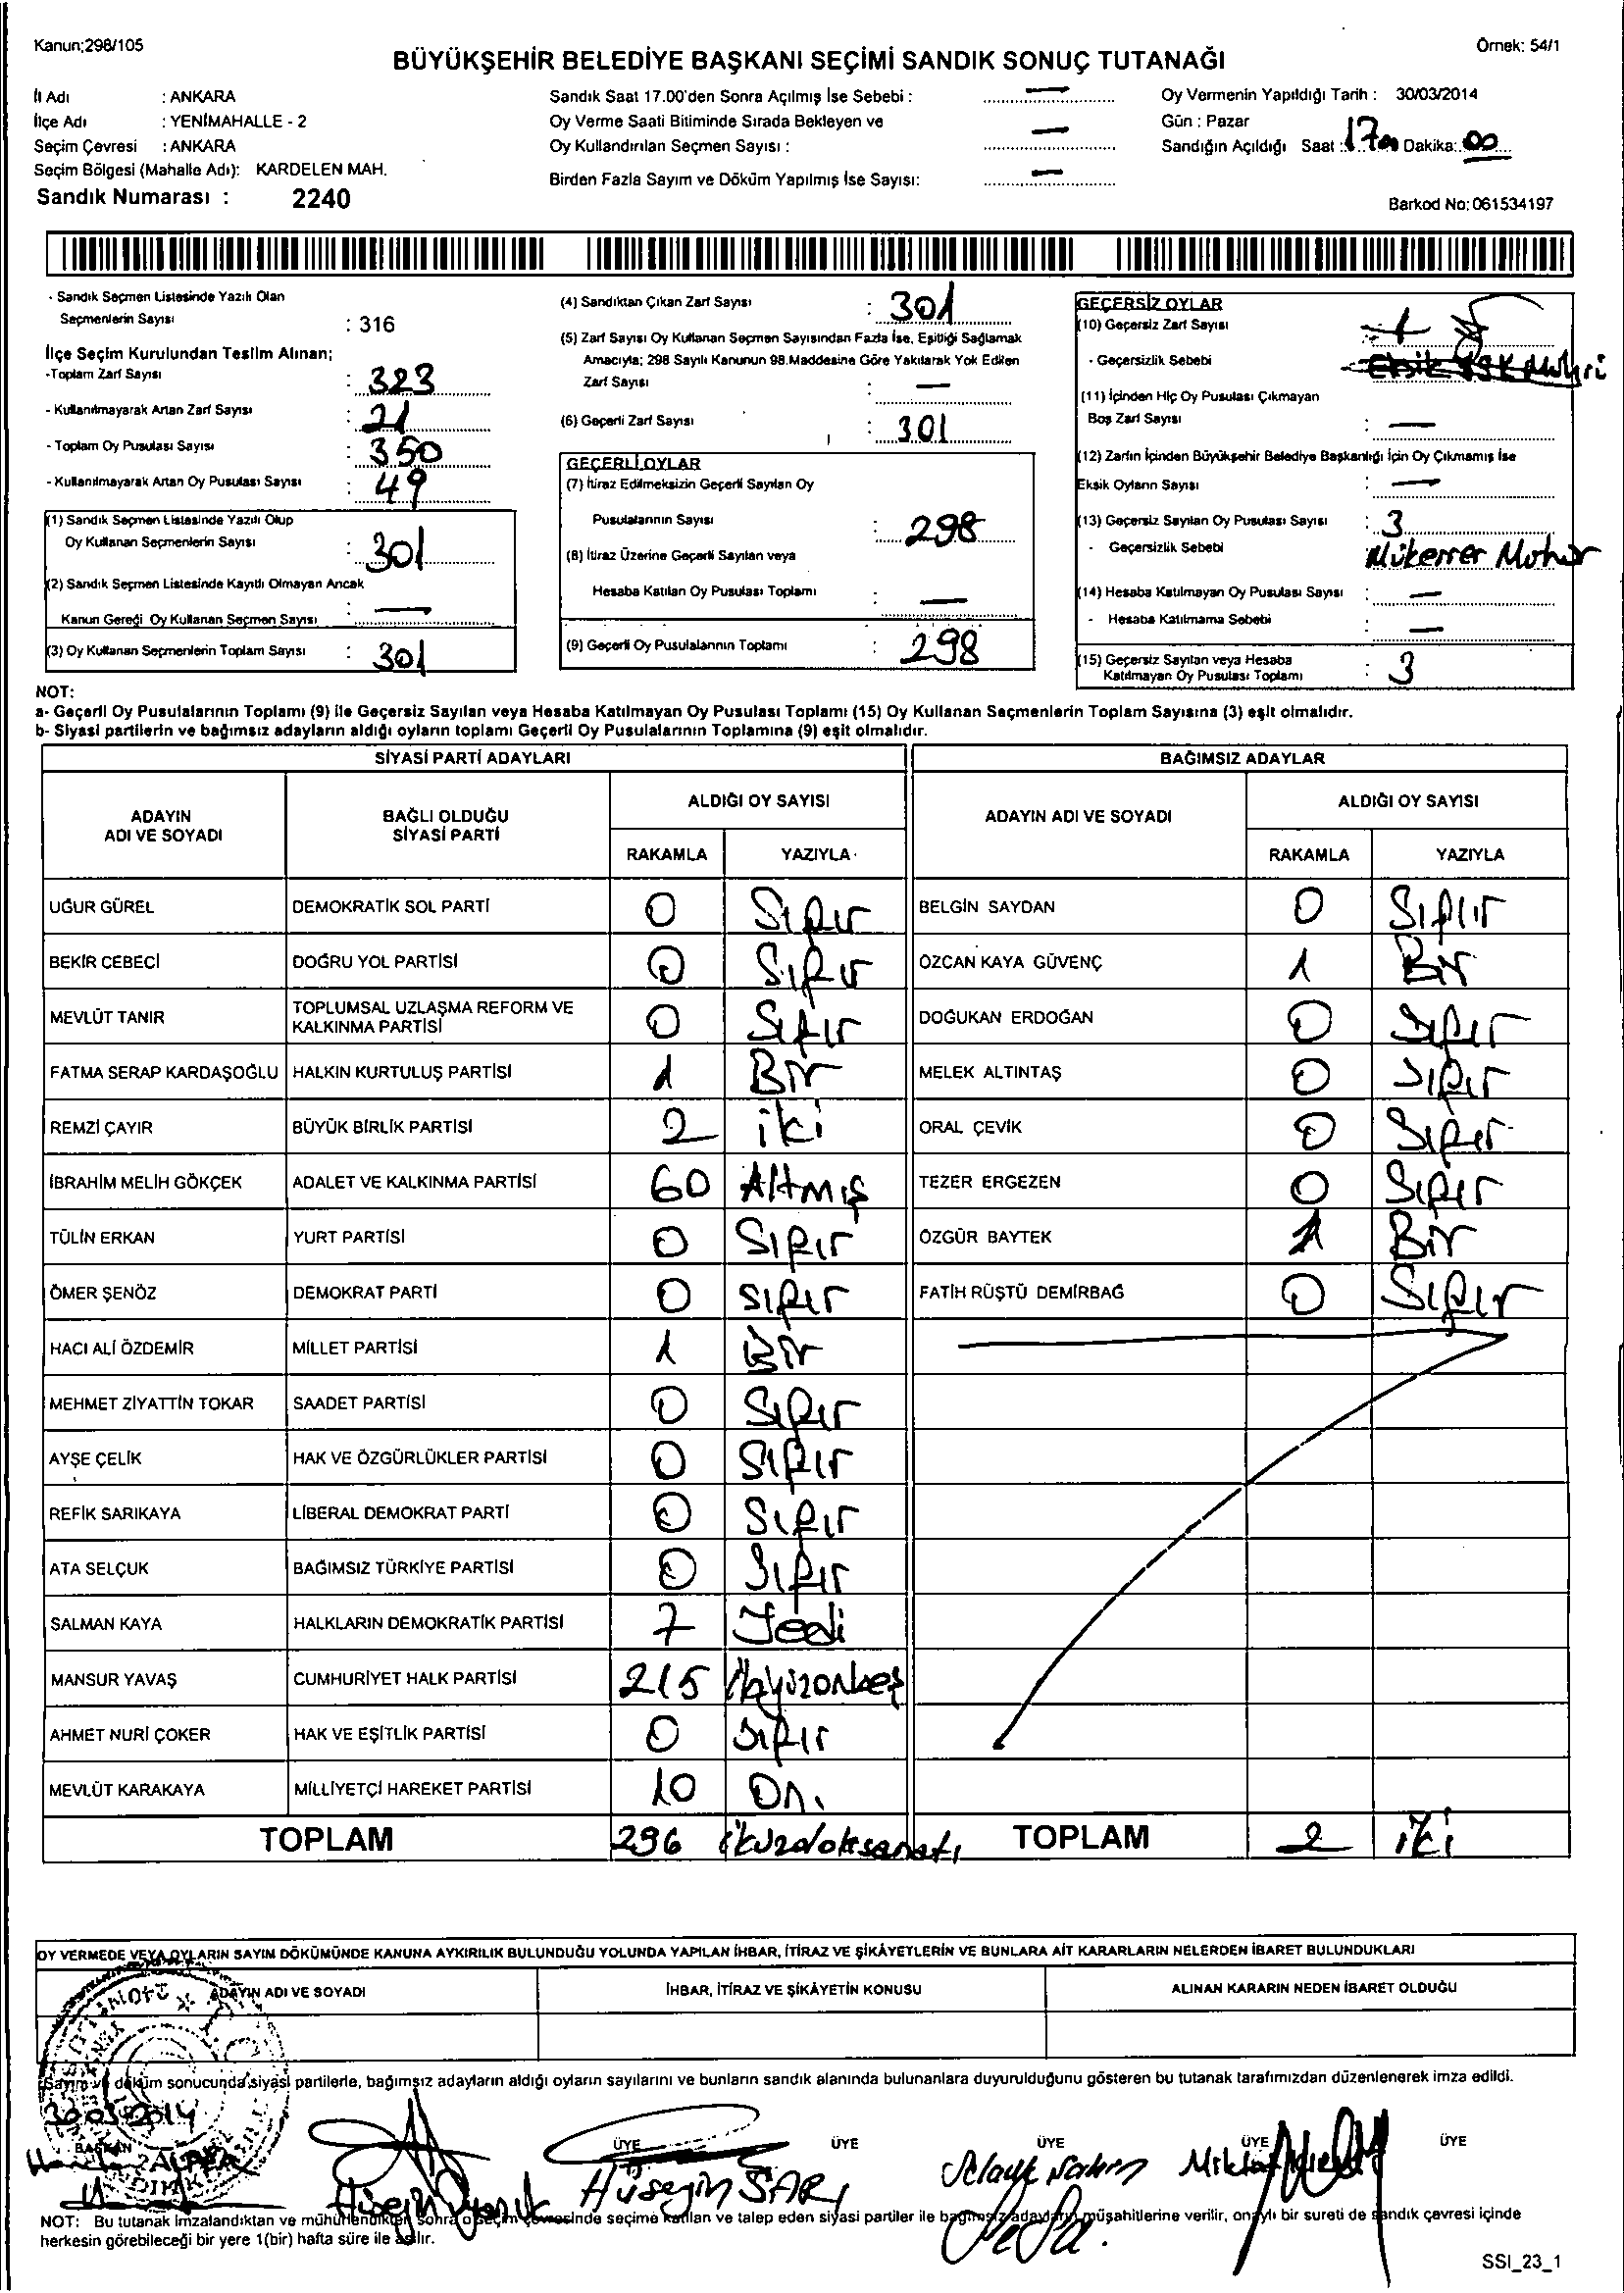 Kanun;298/105
Örnek: 54/1
BÜYÜKŞEHİR BELEDİYE BAŞKANI SEÇİMİ SANDIK SONUÇ TUTANAĞI
İl Adı : ANKARA
İlçe Adı : YENİMAHALLE - 2
Seçim Çevresi : ANKARA
Seçim Bölgesi (Mahalle Adı): KARDELEN MAH.
Sandık Numarası : 2240
Sandık Saat 17.00'den Sonra Açılmış İse Sebebi : —
Oy Verme Saati Bitiminde Sırada Bekleyen ve
Oy Kullandırılan Seçmen Sayısı : —
Birden Fazla Sayım ve Döküm Yapılmış İse Sayısı: —
Oy Vermenin Yapıldığı Tarih : 30/03/2014
Gün : Pazar
Sandığın Açıldığı Saat : 17 Dakika: 00
Barkod No: 061534197
- Sandık Seçmen Listesinde Yazılı Olan
Seçmenlerin Sayısı : 316
İlçe Seçim Kurulundan Teslim Alınan;
-Toplam Zarf Sayısı : 323
- Kullanılmayarak Artan Zarf Sayısı : 21
- Toplam Oy Pusulası Sayısı : 350
- Kullanılmayarak Artan Oy Pusulası Sayısı : 49
(1) Sandık Seçmen Listesinde Yazılı Olup
Oy Kullanan Seçmenlerin Sayısı : 301
(2) Sandık Seçmen Listesinde Kayıtlı Olmayan Ancak
Kanun Gereği Oy Kullanan Seçmen Sayısı : —
(3) Oy Kullanan Seçmenlerin Toplam Sayısı : 301
(4) Sandıktan Çıkan Zarf Sayısı : 301
(5) Zarf Sayısı Oy Kullanan Seçmen Sayısından Fazla İse, Eşitliği Sağlamak
Amacıyla; 298 Sayılı Kanunun 98.Maddesine Göre Yakılarak Yok Edilen
Zarf Sayısı : —
(6) Geçerli Zarf Sayısı : 301
GEÇERLİ OYLAR
(7) İtiraz Edilmeksizin Geçerli Sayılan Oy
Pusulalarının Sayısı : 298
(8) İtiraz Üzerine Geçerli Sayılan veya
Hesaba Katılan Oy Pusulası Toplamı : —
(9) Geçerli Oy Pusulalarının Toplamı : 298
GEÇERSİZ OYLAR
(10) Geçersiz Zarf Sayısı
- Geçersizlik Sebebi
(11) İçinden Hiç Oy Pusulası Çıkmayan
Boş Zarf Sayısı : —
(12) Zarfın İçinden Büyükşehir Belediye Başkanlığı İçin Oy Çıkmamış İse
Eksik Oyların Sayısı : —
(13) Geçersiz Sayılan Oy Pusulası Sayısı : 3
- Geçersizlik Sebebi Mükerrer Mohür
(14) Hesaba Katılmayan Oy Pusulası Sayısı : —
- Hesaba Katılmama Sebebi : —
(15) Geçersiz Sayılan veya Hesaba
Katılmayan Oy Pusulası Toplamı : 3
NOT:
a- Geçerli Oy Pusulalarının Toplamı (9) ile Geçersiz Sayılan veya Hesaba Katılmayan Oy Pusulası Toplamı (15) Oy Kullanan Seçmenlerin Toplam Sayısına (3) eşit olmalıdır.
b- Siyasi partilerin ve bağımsız adayların aldığı oyların toplamı Geçerli Oy Pusulalarının Toplamına (9) eşit olmalıdır.
SİYASİ PARTİ ADAYLARI
BAĞIMSIZ ADAYLAR
ADAYIN ADI VE SOYADI
BAĞLI OLDUĞU SİYASİ PARTİ
ALDIĞI OY SAYISI
RAKAMLA YAZIYLA
ADAYIN ADI VE SOYADI
ALDIĞI OY SAYISI
RAKAMLA YAZIYLA
UĞUR GÜREL DEMOKRATİK SOL PARTİ 0 Sıfır BELGİN SAYDAN 0 Sıfır
BEKİR CEBECİ DOĞRU YOL PARTİSİ 0 Sıfır ÖZCAN KAYA GÜVENÇ 1 Bir
MEVLÜT TANIR TOPLUMSAL UZLAŞMA REFORM VE KALKINMA PARTİSİ 0 Sıfır DOĞUKAN ERDOĞAN 0 Sıfır
FATMA SERAP KARDAŞOĞLU HALKIN KURTULUŞ PARTİSİ 1 Bir MELEK ALTINTAŞ 0 Sıfır
REMZİ ÇAYIR BÜYÜK BİRLİK PARTİSİ 2 iki ORAL ÇEVİK 0 Sıfır
İBRAHİM MELİH GÖKÇEK ADALET VE KALKINMA PARTİSİ 60 Altmış TEZER ERGEZEN 0 Sıfır
TÜLİN ERKAN YURT PARTİSİ 0 Sıfır ÖZGÜR BAYTEK 1 Bir
ÖMER ŞENÖZ DEMOKRAT PARTİ 0 Sıfır FATİH RÜŞTÜ DEMİRBAĞ 0 Sıfır
HACI ALİ ÖZDEMİR MİLLET PARTİSİ 1 Bir
MEHMET ZİYATTİN TOKAR SAADET PARTİSİ 0 Sıfır
AYŞE ÇELİK HAK VE ÖZGÜRLÜKLER PARTİSİ 0 Sıfır
REFİK SARIKAYA LİBERAL DEMOKRAT PARTİ 0 Sıfır
ATA SELÇUK BAĞIMSIZ TÜRKİYE PARTİSİ 0 Sıfır
SALMAN KAYA HALKLARIN DEMOKRATİK PARTİSİ 7 Yedi
MANSUR YAVAŞ CUMHURİYET HALK PARTİSİ 215 ikiyüzonbeş
AHMET NURİ ÇOKER HAK VE EŞİTLİK PARTİSİ 0 Sıfır
MEVLÜT KARAKAYA MİLLİYETÇİ HAREKET PARTİSİ 10 On.
TOPLAM 296 TOPLAM 2 iki
OY VERMEDE VEYA OYLARIN SAYIM DÖKÜMÜNDE KANUNA AYKIRILIK BULUNDUĞU YOLUNDA YAPILAN İHBAR, İTİRAZ VE ŞİKÂYETLERİN VE BUNLARA AİT KARARLARIN NELERDEN İBARET BULUNDUKLARI
ADAYIN ADI VE SOYADI
İHBAR, İTİRAZ VE ŞİKÂYETİN KONUSU
ALINAN KARARIN NEDEN İBARET OLDUĞU
Sayım ve döküm sonucunda siyasi partilerle, bağımsız adayların aldığı oyların sayılarını ve bunların sandık alanında bulunanlara duyurulduğunu gösteren bu tutanak tarafımızdan düzenlenerek imza edildi.
30.03.2014
BAŞKAN ÜYE ÜYE ÜYE ÜYE ÜYE
Hüseyin SARI
NOT: Bu tutanak imzalandıktan ve mühürlendikten sonra o seçim çevresinde seçime katılan ve talep eden siyasi partiler ile bağımsız adayların müşahitlerine verilir, onaylı bir sureti de sandık çevresi içinde
herkesin görebileceği bir yere 1(bir) hafta süre ile asılır.
SSI_23_1